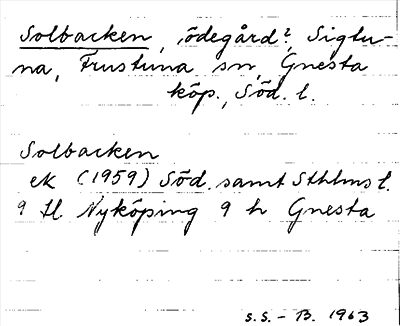 Solbacken, ödegård?, Sigtu-
na, Frustuna sn, Gnesta
köp., Söd. l.
Solbacken
ek (1959) Söd. samt Sthlms l.
9 H. Nyköping 9 h Gnesta
S.S. - B. 1963